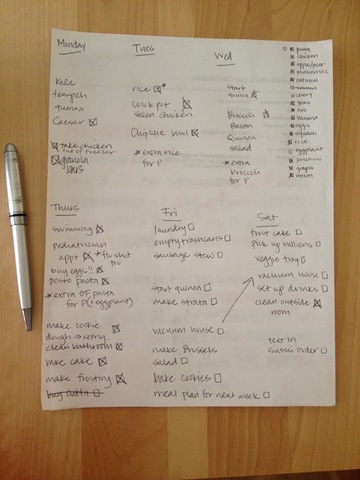 Monday
kale
tempeh
quinoa
Caesar
take chicken
out of freezer
granola
bars
Tues
rice
Chick pot
salsa chicken
Chipotle bowl
* extra rice
for P
Wed
start
Broccoli
Bacon
Quinoa
salad
* extra
broccoli
for P
pasta
chicken
apple/pear
blueberries
oatmeal
celery
peas
banana
eggs
squash
rice
eggplant
zucchini
grapes
Thurs
swimming
pediatrician
appt * flu shot
too
buy eggs!!
pesto pasta
* extra GF pasta
for P (+ eggplant)
make cookie
dough → refrig.
clean bathroom
bake cake
make frosting
buy outfit
Fri
laundry
empty trashcans
sausage stew
start quinoa
make strata
vacuum house
make Brussels
salad
bake cookies
meal plan for next week
Sat
frost cake
pick up balloons
veggie tray
vacuum house
set up drinks
clean outside
room
text in
sushi order